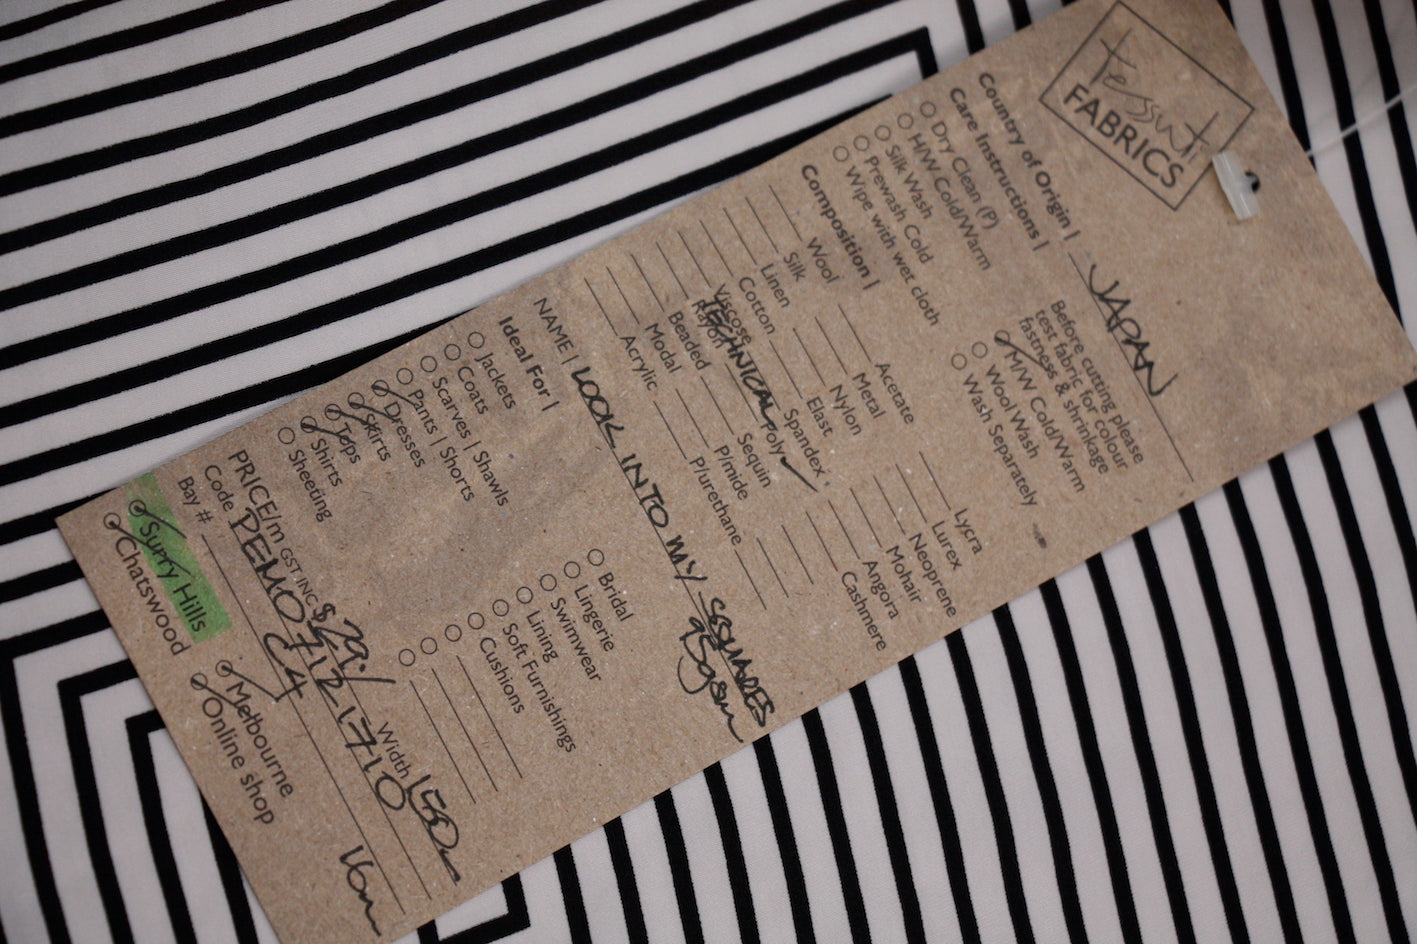 Tessuti
FABRICS
Country of Origin | JAPAN
Care Instructions |
Dry Clean (P)
H/W Cold/Warm
Silk Wash
Prewash Cold
Wipe with wet cloth
Before cutting please
test fabric for colour
fastness & shrinkage
M/W Cold/Warm
Wool Wash
Wash Separately
Composition |
Wool
Silk
Linen
Cotton
Viscose
Rayon
Beaded
Modal
Acrylic
TECHNICAL
Acetate
Metal
Nylon
Elast
Spandex
Poly
Sequin
P/mide
P/urethane
Lycra
Lurex
Neoprene
Mohair
Angora
Cashmere
NAME | LOOK INTO MY SQUARES
95gsm
Ideal For |
Jackets
Coats
Scarves | Shawls
Pants | Shorts
Dresses
Skirts
Tops
Shirts
Sheeting
Bridal
Lingerie
Swimwear
Lining
Soft Furnishings
Cushions
PRICE/m GST INC $29./ Width 150
Code PEMO71121710
Bay # C4
Surry Hills
Chatswood
Melbourne
Online shop